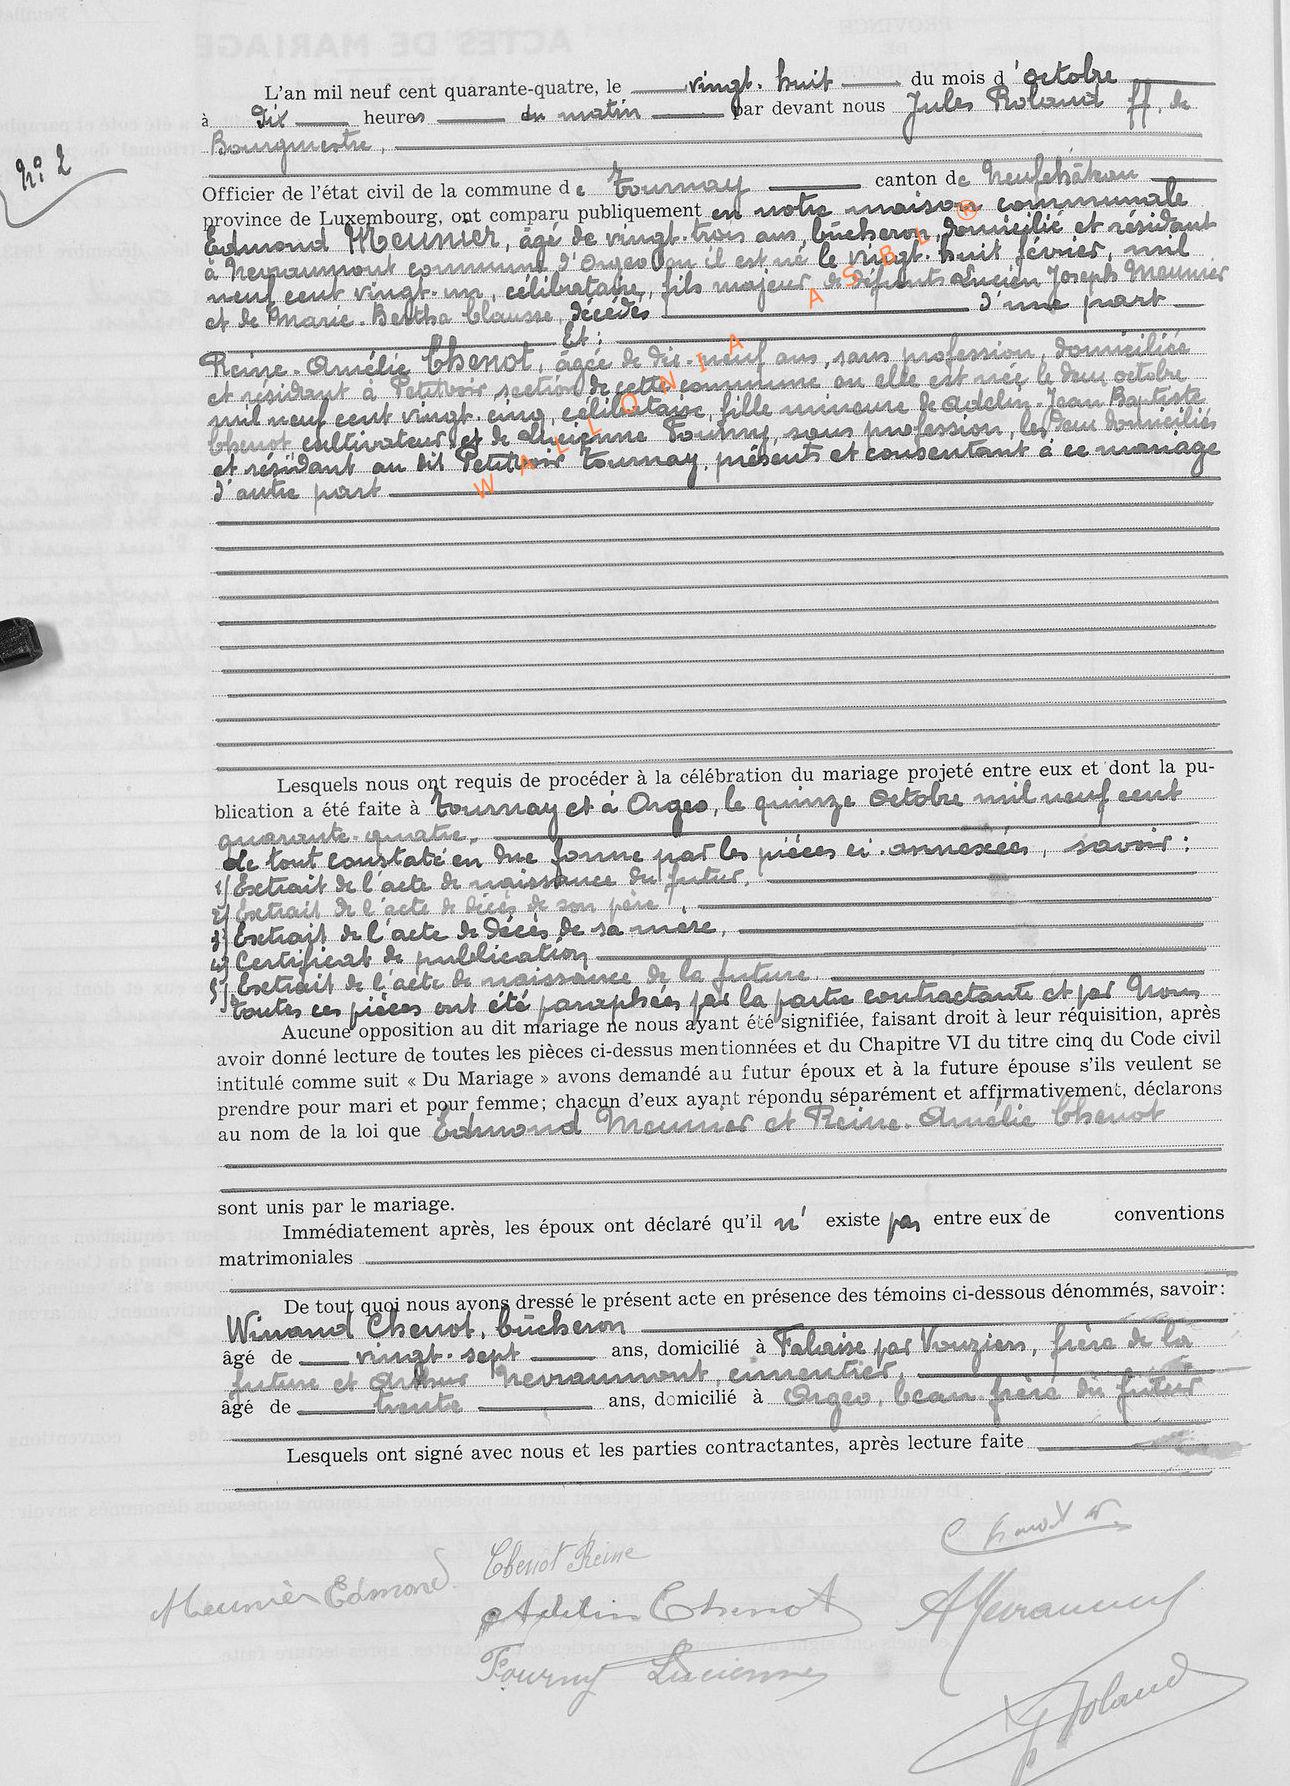 L'an mil neuf cent quarante-quatre, le vingt-huit du mois d'octobre
à dix heures du matin par devant nous Jules Roland ff. de
Bourgmestre,
N° 2
Officier de l'état civil de la commune de Tournay canton de Neufchâteau
province de Luxembourg, ont comparu publiquement en notre maison communale
Edmond Meunier, âgé de vingt-trois ans, bûcheron, domicilié et résidant
à Nevraumont commune d'Orgeo où il est né le vingt-huit février, mil
neuf cent vingt-un, célibataire, fils majeur de défunts Lucien Joseph Meunier
et de Marie-Bertha Clausse, décédés d'une part
Et:
Reine-Amélie Chenot, âgée de dix-neuf ans, sans profession, domiciliée
et résidant à Petitvoir section de cette commune où elle est née le deux octobre
mil neuf cent vingt-cinq, célibataire, fille mineure de Adelin Jean Baptiste
Chenot cultivateur et de Lucienne Fourny, sans profession, les deux domiciliés
et résidant au dit Petitvoir Tournay, présents et consentant à ce mariage
d'autre part
WALLONIA ASBL ®
Lesquels nous ont requis de procéder à la célébration du mariage projeté entre eux et dont la pu-
blication a été faite à Tournay et à Orgeo, le quinze octobre mil neuf cent
quarante-quatre.
de tout constaté en due forme par les pièces ci-annexées, savoir:
1) Extrait de l'acte de naissance du futur,
2) Extrait de l'acte de décès de son père,
3) Extrait de l'acte de décès de sa mère,
4) Certificat de publication
5) Extrait de l'acte de naissance de la future.
Toutes ces pièces ont été paraphées par la partie contractante et par Nous
Aucune opposition au dit mariage ne nous ayant été signifiée, faisant droit à leur réquisition, après
avoir donné lecture de toutes les pièces ci-dessus mentionnées et du Chapitre VI du titre cinq du Code civil
intitulé comme suit « Du Mariage » avons demandé au futur époux et à la future épouse s'ils veulent se
prendre pour mari et pour femme; chacun d'eux ayant répondu séparément et affirmativement, déclarons
au nom de la loi que Edmond Meunier et Reine-Amélie Chenot
sont unis par le mariage.
Immédiatement après, les époux ont déclaré qu'il n' existe pas entre eux de conventions
matrimoniales
De tout quoi nous avons dressé le présent acte en présence des témoins ci-dessous dénommés, savoir:
Winand Chenot, bûcheron
âgé de vingt-sept ans, domicilié à Falaise par Vouziers, frère de la
future et Arthur Nevraumont, cimentier,
âgé de trente ans, domicilié à Orgeo, beau-frère du futur
Lesquels ont signé avec nous et les parties contractantes, après lecture faite
Chenot W.
Chenot Reine
Meunier Edmond.
Adelin Chenot
A Nevraumont
Fourny Lucienne
J Roland